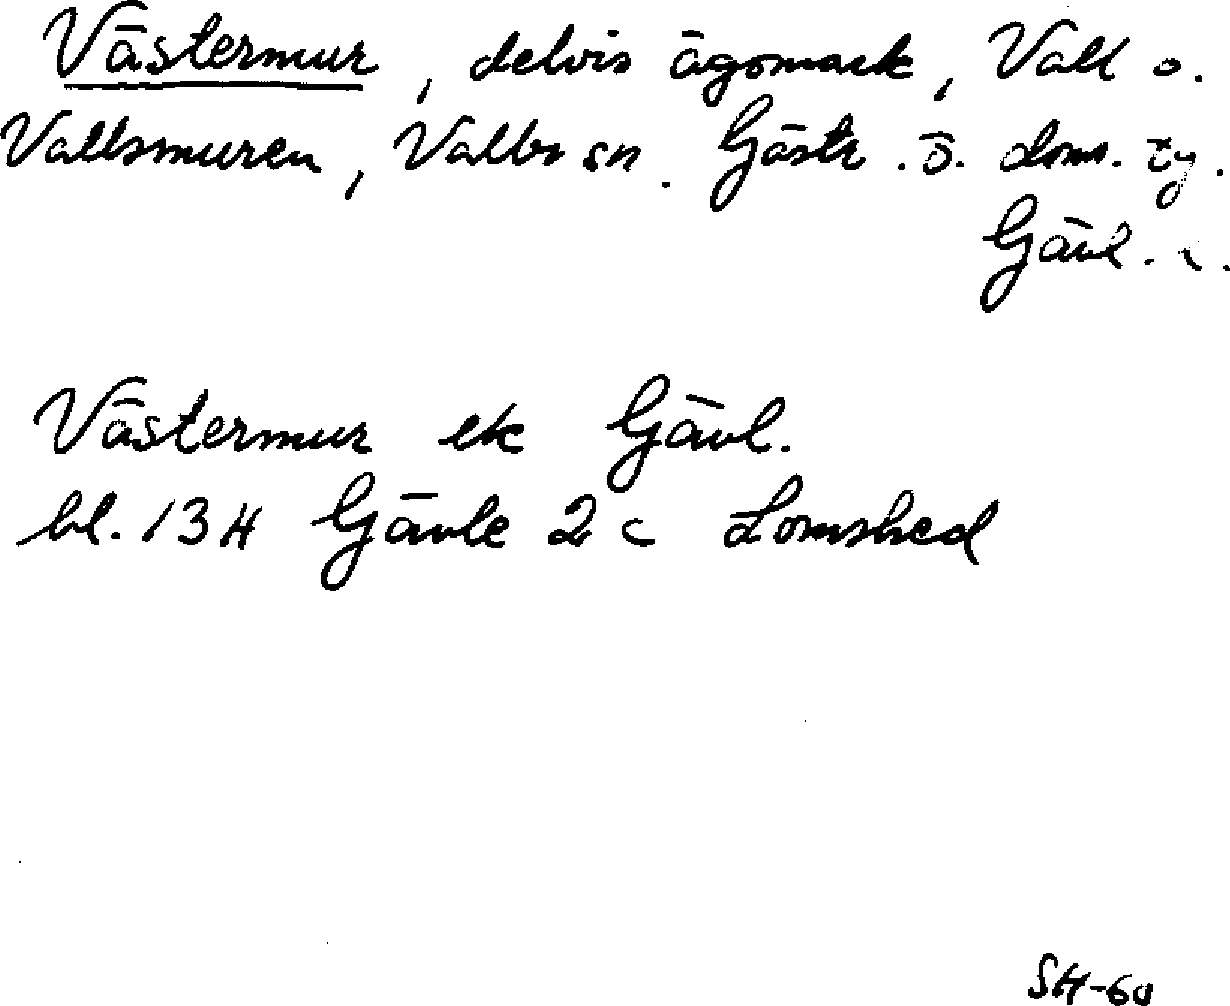 Västermur, delvis ägomark, Vall o.
Vallsmuren, Valbo sn. Gästr. ö. doms. ty.
Gävl. l.
Västermur ek Gävl.
bl. 13H Gävle 2c Lomshed
SH-60